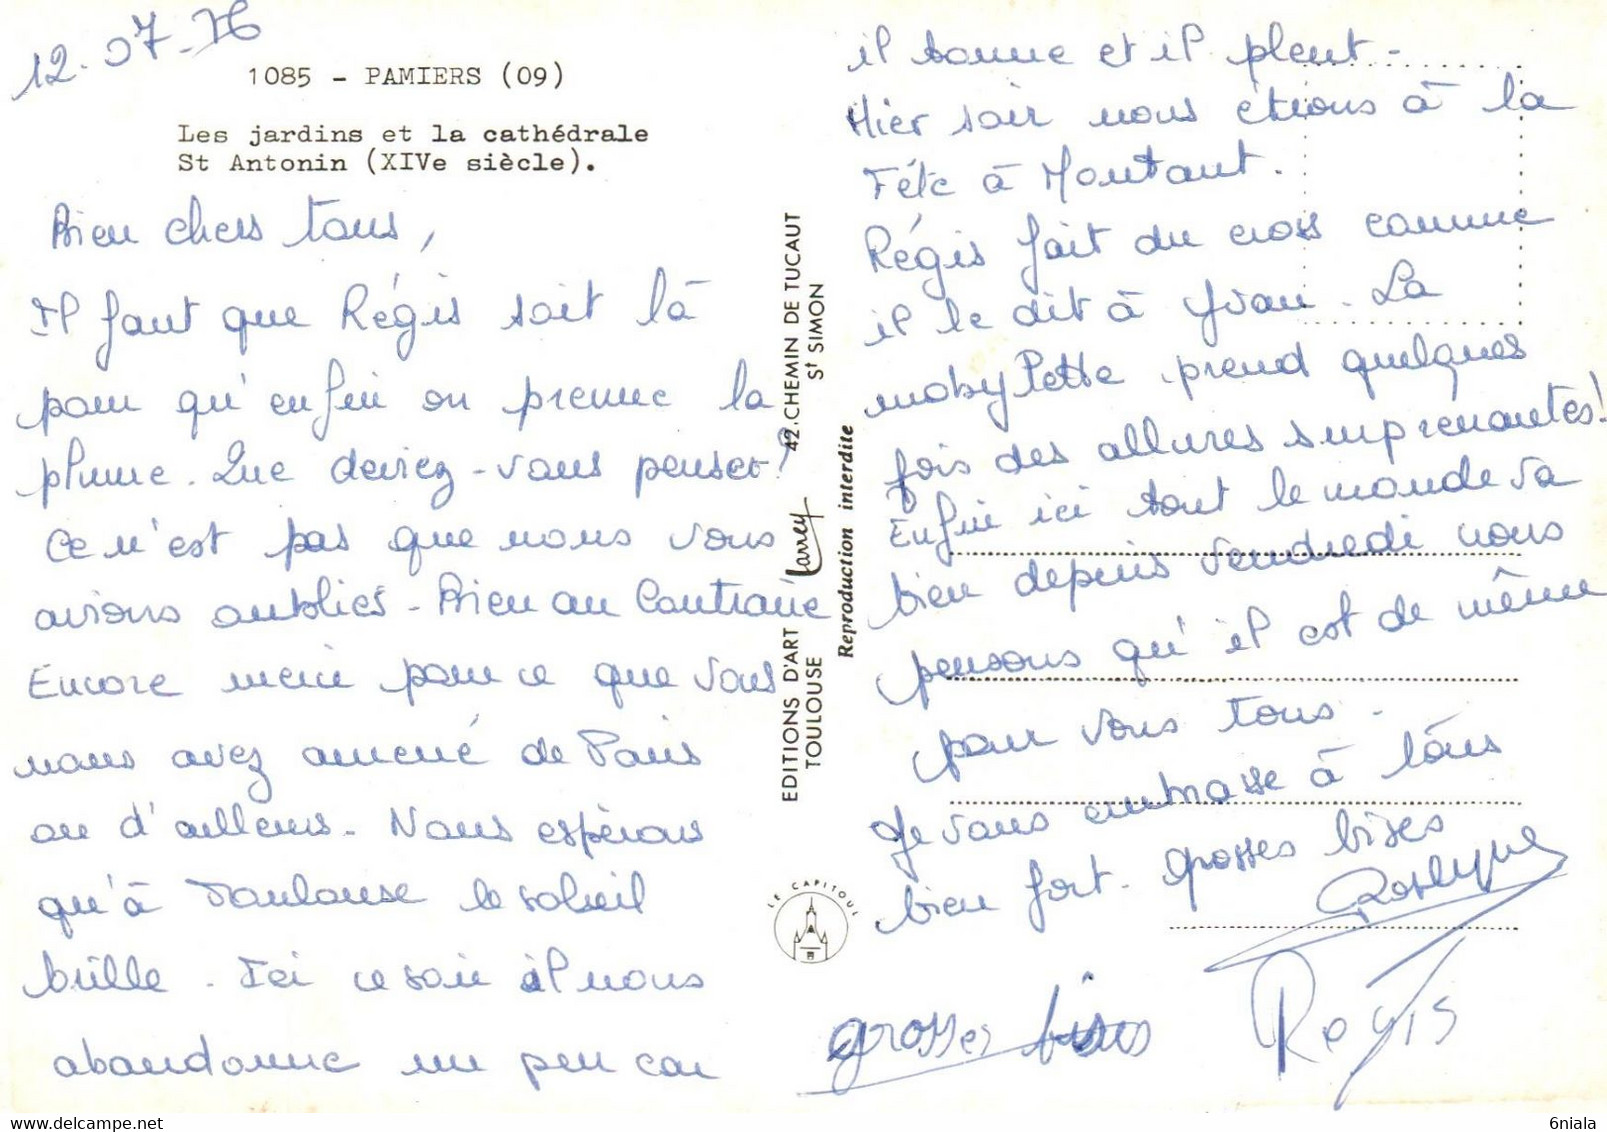 12.07.76
1085 - PAMIERS (09)
Les jardins et la cathédrale
St Antonin (XIVe siècle).
Bien chers tous,
Il faut que Régis soit là
pour qu'enfin on prenne la
plume. Que deviez-vous penser?
Ce n'est pas que nous vous
avions oubliés - Bien au Contraire
Encore merci pour ce que vous
nous avez amené de Paris
ou d'ailleurs. Nous espérons
qu'à Toulouse le soleil
brille. Ici ce soir il nous
abandonne un peu car
EDITIONS D'ART Larrey 42.CHEMIN DE TUCAUT
TOULOUSE St SIMON
Reproduction interdite
LE CAPITOUL
il tonne et il pleut -
Hier soir nous étions à la
Fête à Montaut.
Régis fait du cross comme
il le dit à Yvan. La
mobylette prend quelques
fois des allures surprenantes!
Enfin ici tout le monde va
bien depuis vendredi nous
pensons qu'il est de même
pour vous tous.
Je vous embrasse à tous
bien fort. grosses bises
Roselyne
grosses bises Régis
6niala